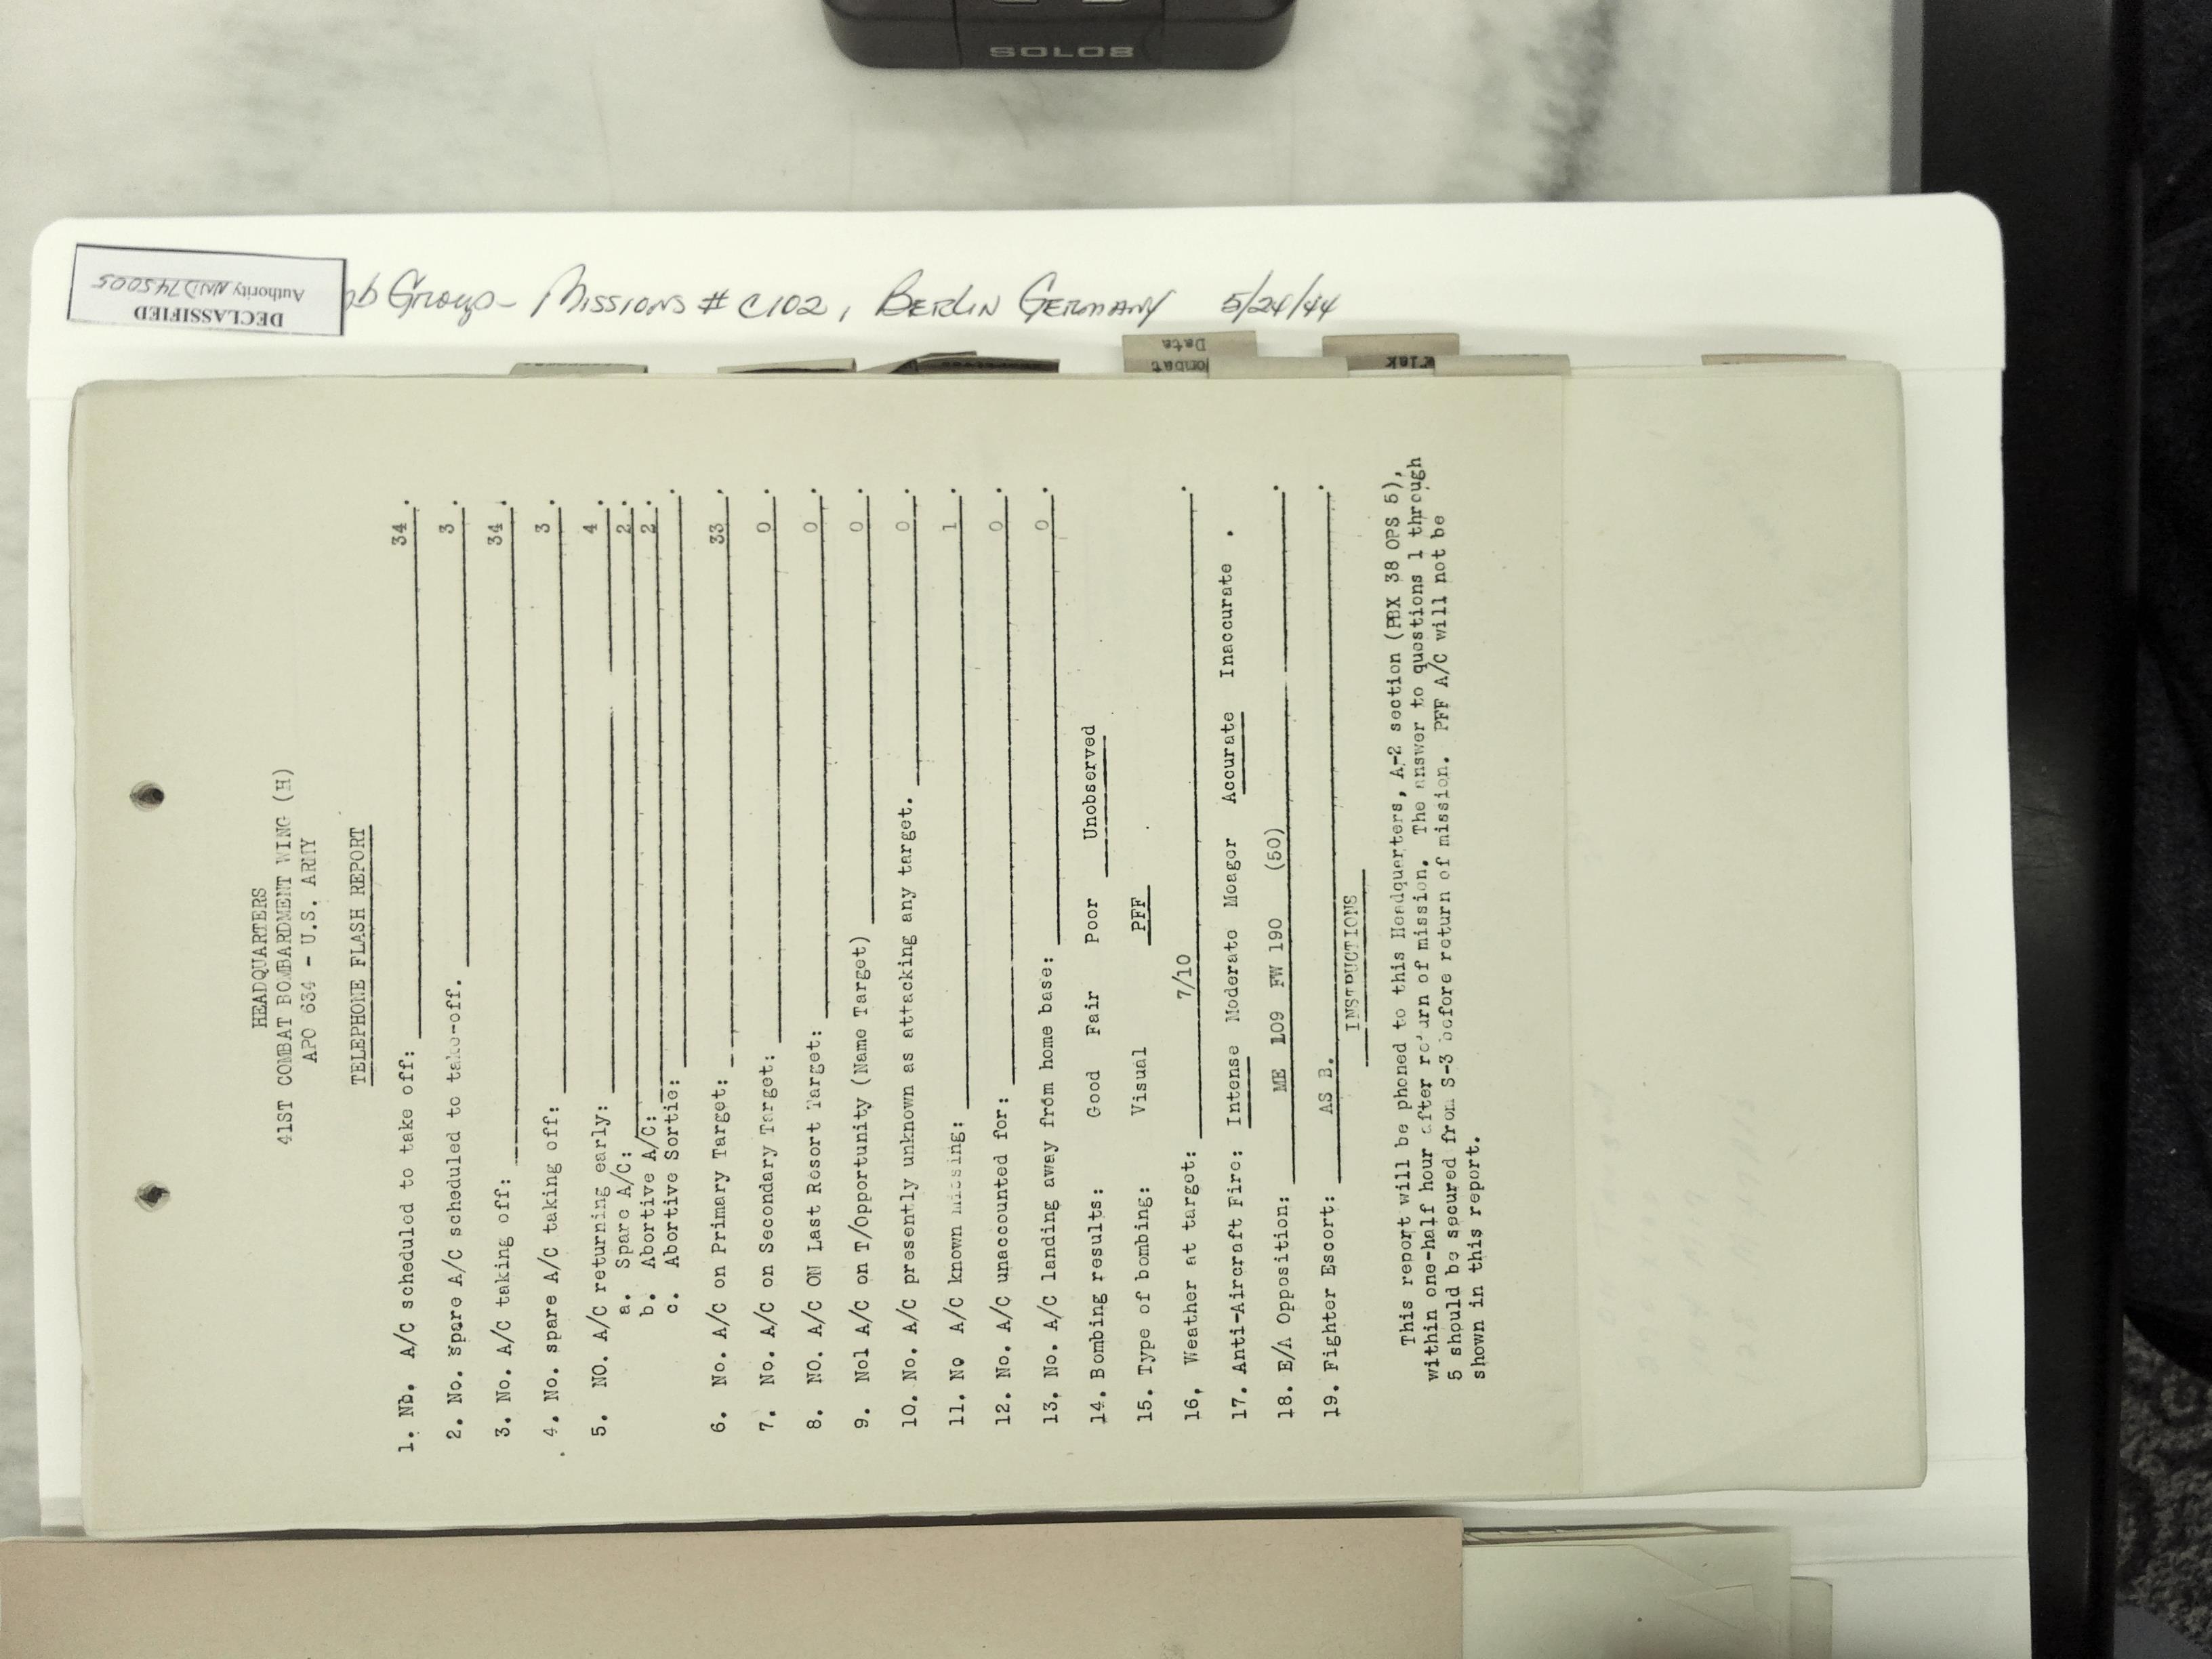 SOLO8
DECLASSIFIED
Authority NND745005
Group - Missions # C102, Berlin Germany 5/24/44
Data
HEADQUARTERS
41ST COMBAT BOMBARDMENT WING (H)
APO 634 - U.S. ARMY
TELEPHONE FLASH REPORT
1. No. A/C scheduled to take off: 34.
2. No. spare A/C scheduled to take-off. 3.
3. No. A/C taking off: 34.
4. No. spare A/C taking off: 3.
5. NO. A/C returning early: 4.
a. Spare A/C: 2.
b. Abortive A/C: 2.
c. Abortive Sortie: .
6. No. A/C on Primary Target: 33.
7. No. A/C on Secondary Target: 0.
8. NO. A/C ON Last Resort Target: 0.
9. Nol A/C on T/Opportunity (Name Target) 0.
10. No. A/C presently unknown as attacking any target. 0.
11. No A/C known missing: 1.
12. No. A/C unaccounted for: 0.
13. No. A/C landing away from home base: 0.
14. Bombing results: Good Fair Poor Unobserved
15. Type of bombing: Visual PFF
16, Weather at target: 7/10 .
17. Anti-Aircraft Fire: Intense Moderato Moager Accurate Inaccurate .
18. E/A Opposition: ME 109 FW 190 (50) .
19. Fighter Escort: AS B. .
INSTRUCTIONS
This report will be phoned to this Headquarters, A-2 section (PBX 38 OPS 5),
within one-half hour after return of mission. The answer to questions 1 through
5 should be secured from S-3 before return of mission. PFF A/C will not be
shown in this report.